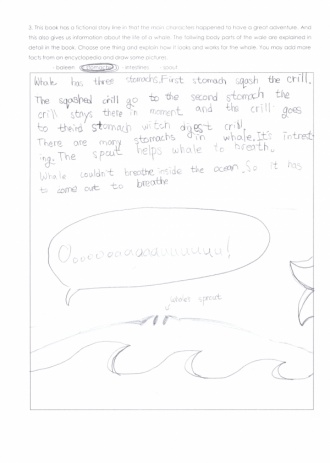 2. This book has a fictional story line in that the main characters happened to have a great adventure. And
this also gives us information about the life of a whale. The following body parts of the wale are explained in
detail in the book. Choose one thing and explain how it looks and works for the whale. You may add more
facts from an encyclopedia and draw some pictures.
- baleen - stomachs - intestines - spout
Whale has three stomachs. First stomach sqash the crill.
The sqashed crill go to the second stomach the
crill stays there in moment and the crill goes
to third stomach witch digest crill.
There are many stomachs in whale. It's intrest-
ing. The spout helps whale to breath.
Whale couldn't breathe inside the ocean. So it has
to come out to breathe
whale sprout